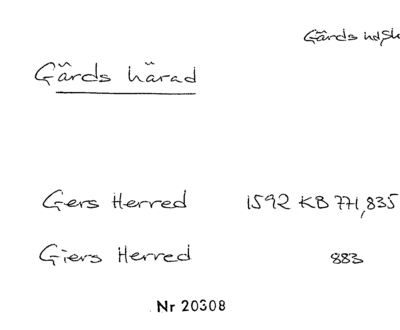 Gärds hd, Sk
Gärds härad
Gers Herred 1592 KB 771,835
Giers Herred 883
Nr 20308